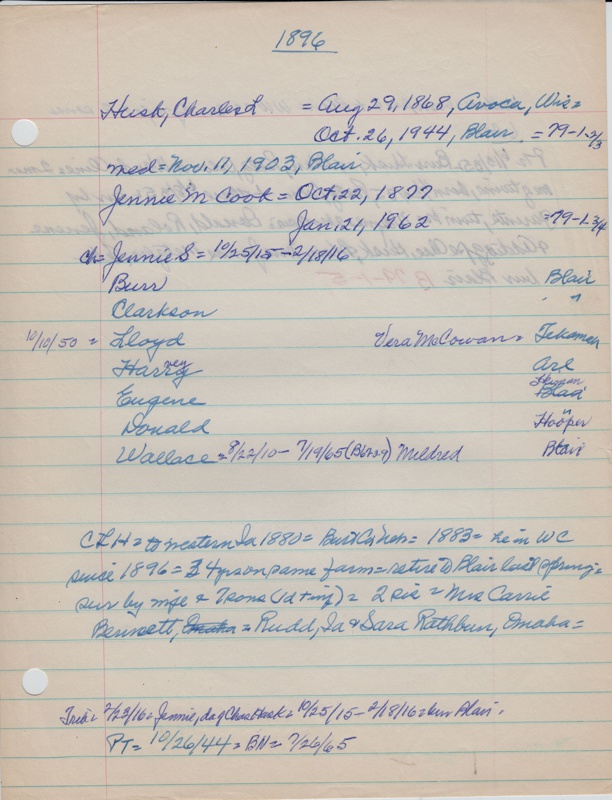 1896
Husk, Charles L = Aug 29, 1868, Avoca, Wis =
Oct. 26, 1944, Blair = 79-1-2/3
med = Nov. 11, 1903, Blair
Jennie M Cook = Oct. 22, 1877
Jan. 21, 1962 = 79-1-3/4
ch = Jennie S = 10/25/15 - 2/18/16
Burr Blair
Clarkson " "
10/10/50 = Lloyd Vera McCowan = Tekamah
Harvey vey Arl
Eugene Blair
Donald Hooper
Wallace = 8/22/10 - 7/19/65 (B6729) Mildred Blair
CLH = to western Ia 1880 = Burt Co Neb = 1883 = he in WC
since 1896 = 34 yrs on same farm = retire to Blair last spring =
sur by wife & 7 sons (1 d + inf) = 2 sis = Mrs Carrie
Bennett, Omaha = Rudd, Ia & Sara Rathbun, Omaha =
Trib = 2/23/16 = Jennie, da of Chas Husk = 10/25/15 - 2/18/16 = bur Blair =
PT = 10/26/44 = BH = 7/26/65